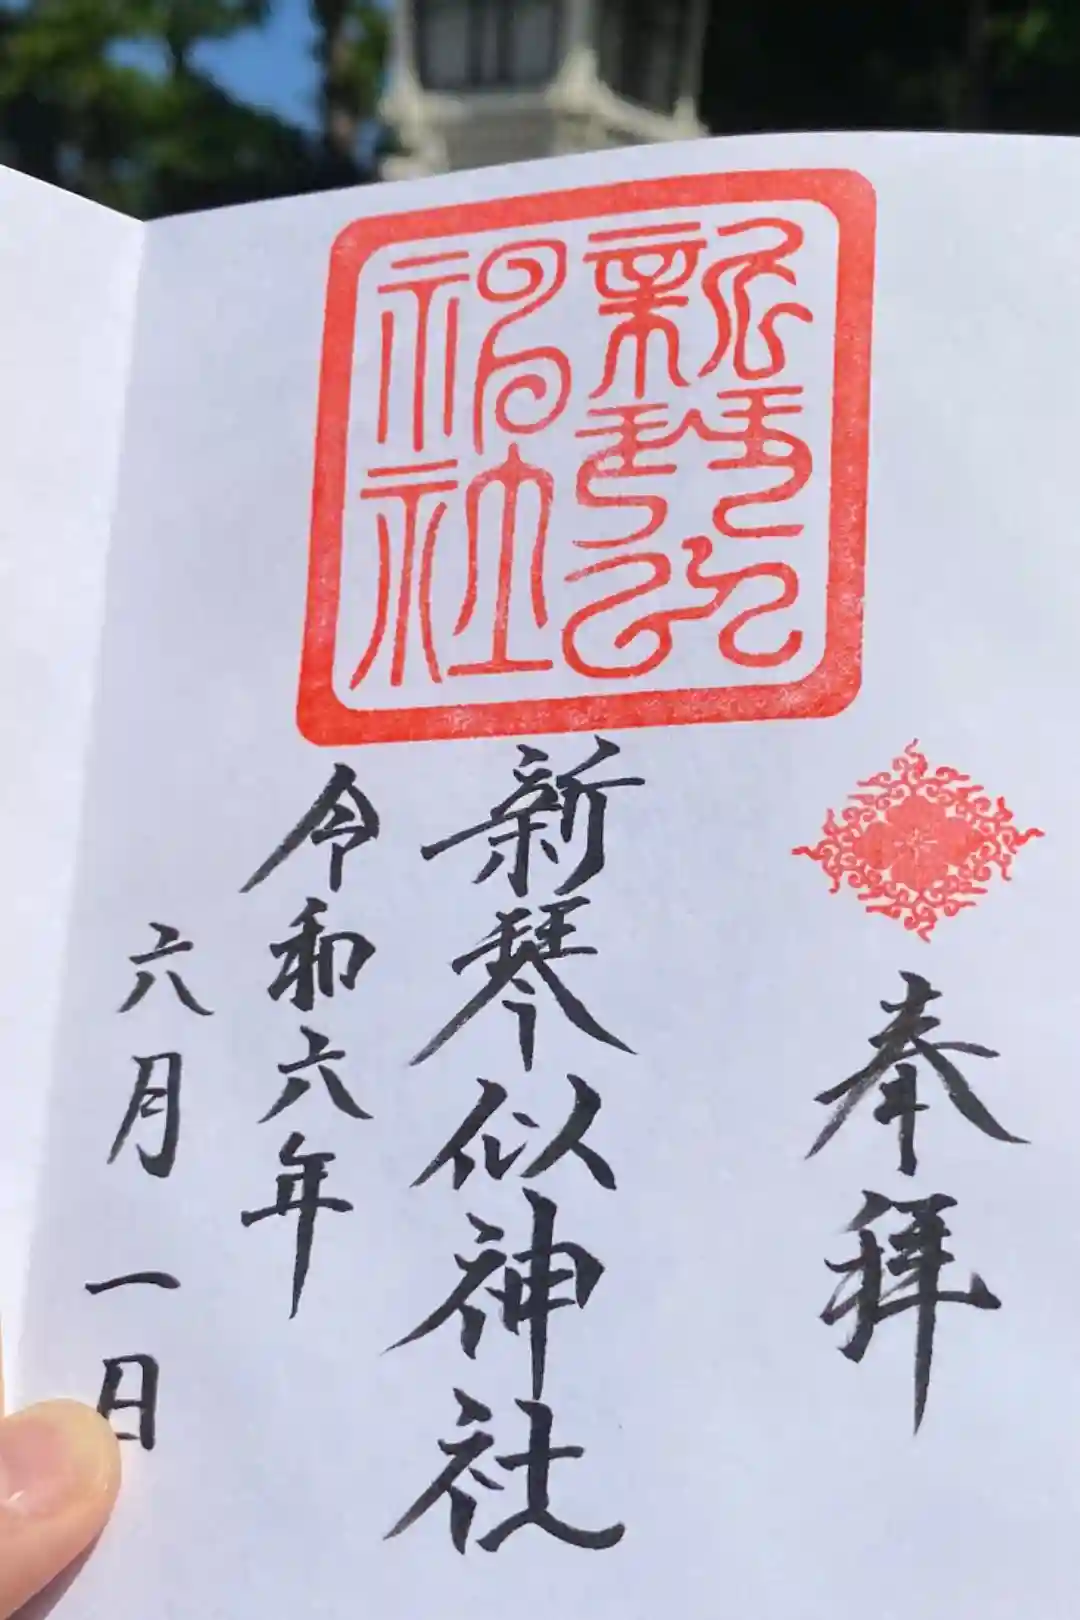 新琴似
神社
奉拝
新琴似神社
令和六年
六月一日